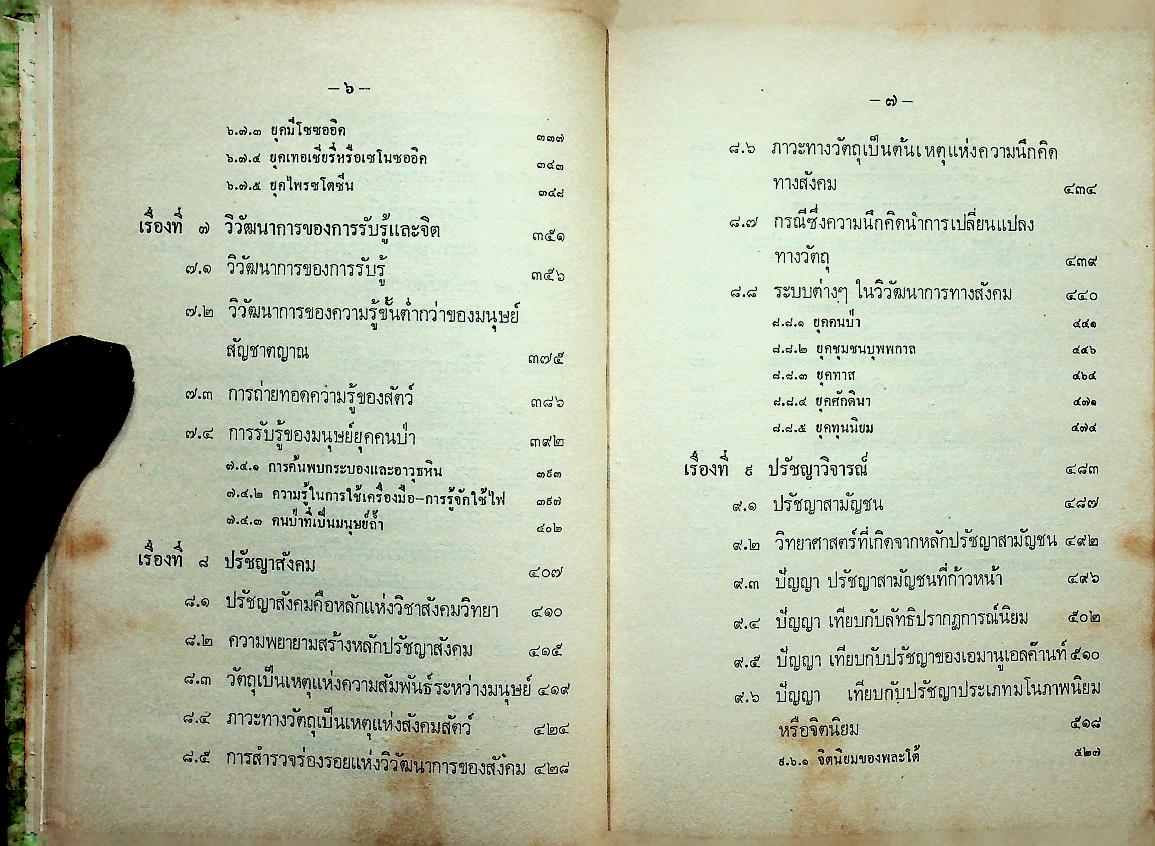 –๖–
๖.๗.๓ ยุคมีโซซออิค ๓๓๗
๖.๗.๔ ยุคเทอเชียรี่หรือเซโนซออิค ๓๔๓
๖.๗.๕ ยุคไพรซโตซีน ๓๔๘
เรื่องที่ ๗ วิวัฒนาการของการรับรู้และจิต ๓๕๑
๗.๑ วิวัฒนาการของการรับรู้ ๓๕๖
๗.๒ วิวัฒนาการของความรู้ขั้นต่ำกว่าของมนุษย์
สัญชาตญาณ ๓๗๕
๗.๓ การถ่ายทอดความรู้ของสัตว์ ๓๘๖
๗.๔ การรับรู้ของมนุษย์ยุคคนป่า ๓๙๒
๗.๔.๑ การค้นพบกระบองและอาวุธหิน ๓๙๓
๗.๔.๒ ความรู้ในการใช้เครื่องมือ–การรู้จักใช้ไฟ ๓๙๗
๗.๔.๓ คนป่าที่เป็นมนุษย์ถ้ำ ๔๐๒
เรื่องที่ ๘ ปรัชญาสังคม ๔๐๗
๘.๑ ปรัชญาสังคมคือหลักแห่งวิชาสังคมวิทยา ๔๑๐
๘.๒ ความพยายามสร้างหลักปรัชญาสังคม ๔๑๕
๘.๓ วัตถุเป็นเหตุแห่งความสัมพันธ์ระหว่างมนุษย์ ๔๑๙
๘.๔ ภาวะทางวัตถุเป็นเหตุแห่งสังคมสัตว์ ๔๒๔
๘.๕ การสำรวจร่องรอยแห่งวิวัฒนาการของสังคม ๔๒๘
–๗–
๘.๖ ภาวะทางวัตถุเป็นต้นเหตุแห่งความนึกคิด
ทางสังคม ๔๓๔
๘.๗ กรณีซึ่งความนึกคิดนำการเปลี่ยนแปลง
ทางวัตถุ ๔๓๙
๘.๘ ระบบต่างๆ ในวิวัฒนาการทางสังคม ๔๔๐
๘.๘.๑ ยุคคนป่า ๔๔๑
๘.๘.๒ ยุคชุมชนบุพพกาล ๔๔๖
๘.๘.๓ ยุคทาส ๔๖๔
๘.๘.๔ ยุคศักดินา ๔๗๑
๘.๘.๕ ยุคทุนนิยม ๔๗๔
เรื่องที่ ๙ ปรัชญาวิจารณ์ ๔๘๓
๙.๑ ปรัชญาสามัญชน ๔๘๗
๙.๒ วิทยาศาสตร์ที่เกิดจากหลักปรัชญาสามัญชน ๔๙๒
๙.๓ ปัญญา ปรัชญาสามัญชนที่ก้าวหน้า ๔๙๖
๙.๔ ปัญญา เทียบกับลัทธิปรากฏการณ์นิยม ๕๐๒
๙.๕ ปัญญา เทียบกับปรัชญาของเอมานูเอลค๊านท์ ๕๑๐
๙.๖ ปัญญา เทียบกับปรัชญาประเภทมโนภาพนิยม
หรือจิตนิยม ๕๑๘
๙.๖.๑ จิตนิยมของพละโต้ ๕๒๗